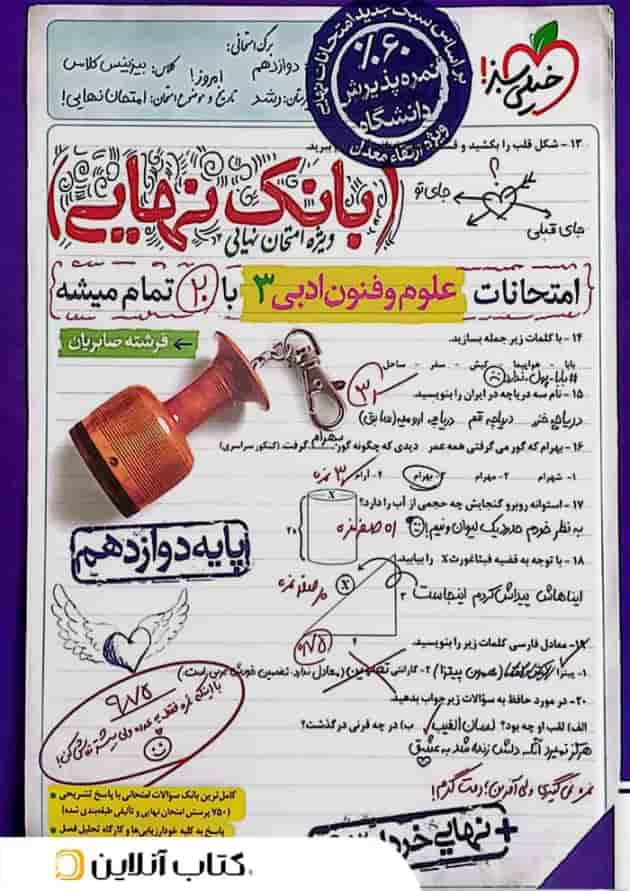 خیلی سبز!
براساس سبک جدید امتحانات نهایی
%۶۰
نمره پذیرش
دانشگاه
ویژه ارتقاء معدل
برگ امتحانی:
دوازدهم
کلاس: بیزینس کلاس
امروز!
رشد
تاریخ و موضوع امتحان: امتحان نهایی!
۱۳- شکل قلب را بکشید و
ببرید.
جای تو
؟
جای قبلی
(بانک نهایی)
ویژه امتحان نهایی
امتحانات علوم و فنون ادبی ۳ با ۲۰ تمام میشه
فرشته صابریان
۱۴- با کلمات زیر جمله بسازید.
بابا - هواپیما - کیش - سفر - ساحل
#بابا_پول_ندارد
۱۵- نام سه دریاچه در ایران را بنویسید.
دریاچه خزر دریاچه قم دریاچه ارومیه (سابق)
۱۶- بهرام که گور می‌گرفتی همه عمر دیدی که چگونه گور بهرام گرفت. (کنکور سراسری)
۱- شهرام ۲- مهرام ۳- بهرام ۴- آرام
۳ نمره
۱۷- استوانه روبرو گنجایش چه حجمی از آب را دارد؟
X
۲۰
به نظر خودم حدود یک لیوان و نیم!
۱۸- با توجه به قضیه فیثاغورث X را بیابید.
ایناهاش پیداش کردم اینجاست
X
۲
۴
۰/۷۵
۱۹- معادل فارسی کلمات زیر را بنویسید.
۱- پیتزا
۲- گارانتی
۲۰- در مورد حافظ به سؤالات زیر جواب بدهید.
الف) لقب او چه بود؟ لسان الغیب ب) در چه قرنی درگذشت؟
هرگز نمیرد آنکه دلش زنده شد به عشق
نمره نمی‌گیری ولی آفرین! دمت گرم!
پایه دوازدهم
۹/۷۵
کامل‌ترین بانک سؤالات امتحانی با پاسخ تشریحی
(۷۵۰ پرسش امتحان نهایی و تألیفی طبقه‌بندی شده)
پاسخ به کلیه خودارزیابی‌ها و کارگاه تحلیل فصل
+ نهایی خرداد
کتاب آنلاین